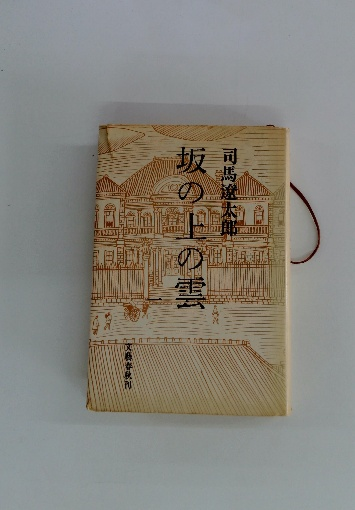 司馬遼太郎
坂の上の雲
一
文藝春秋刊